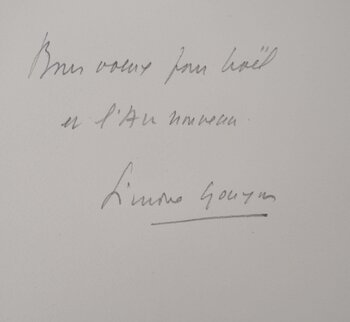 Bons voeux pour Noël
et l'An nouveau.
Simone